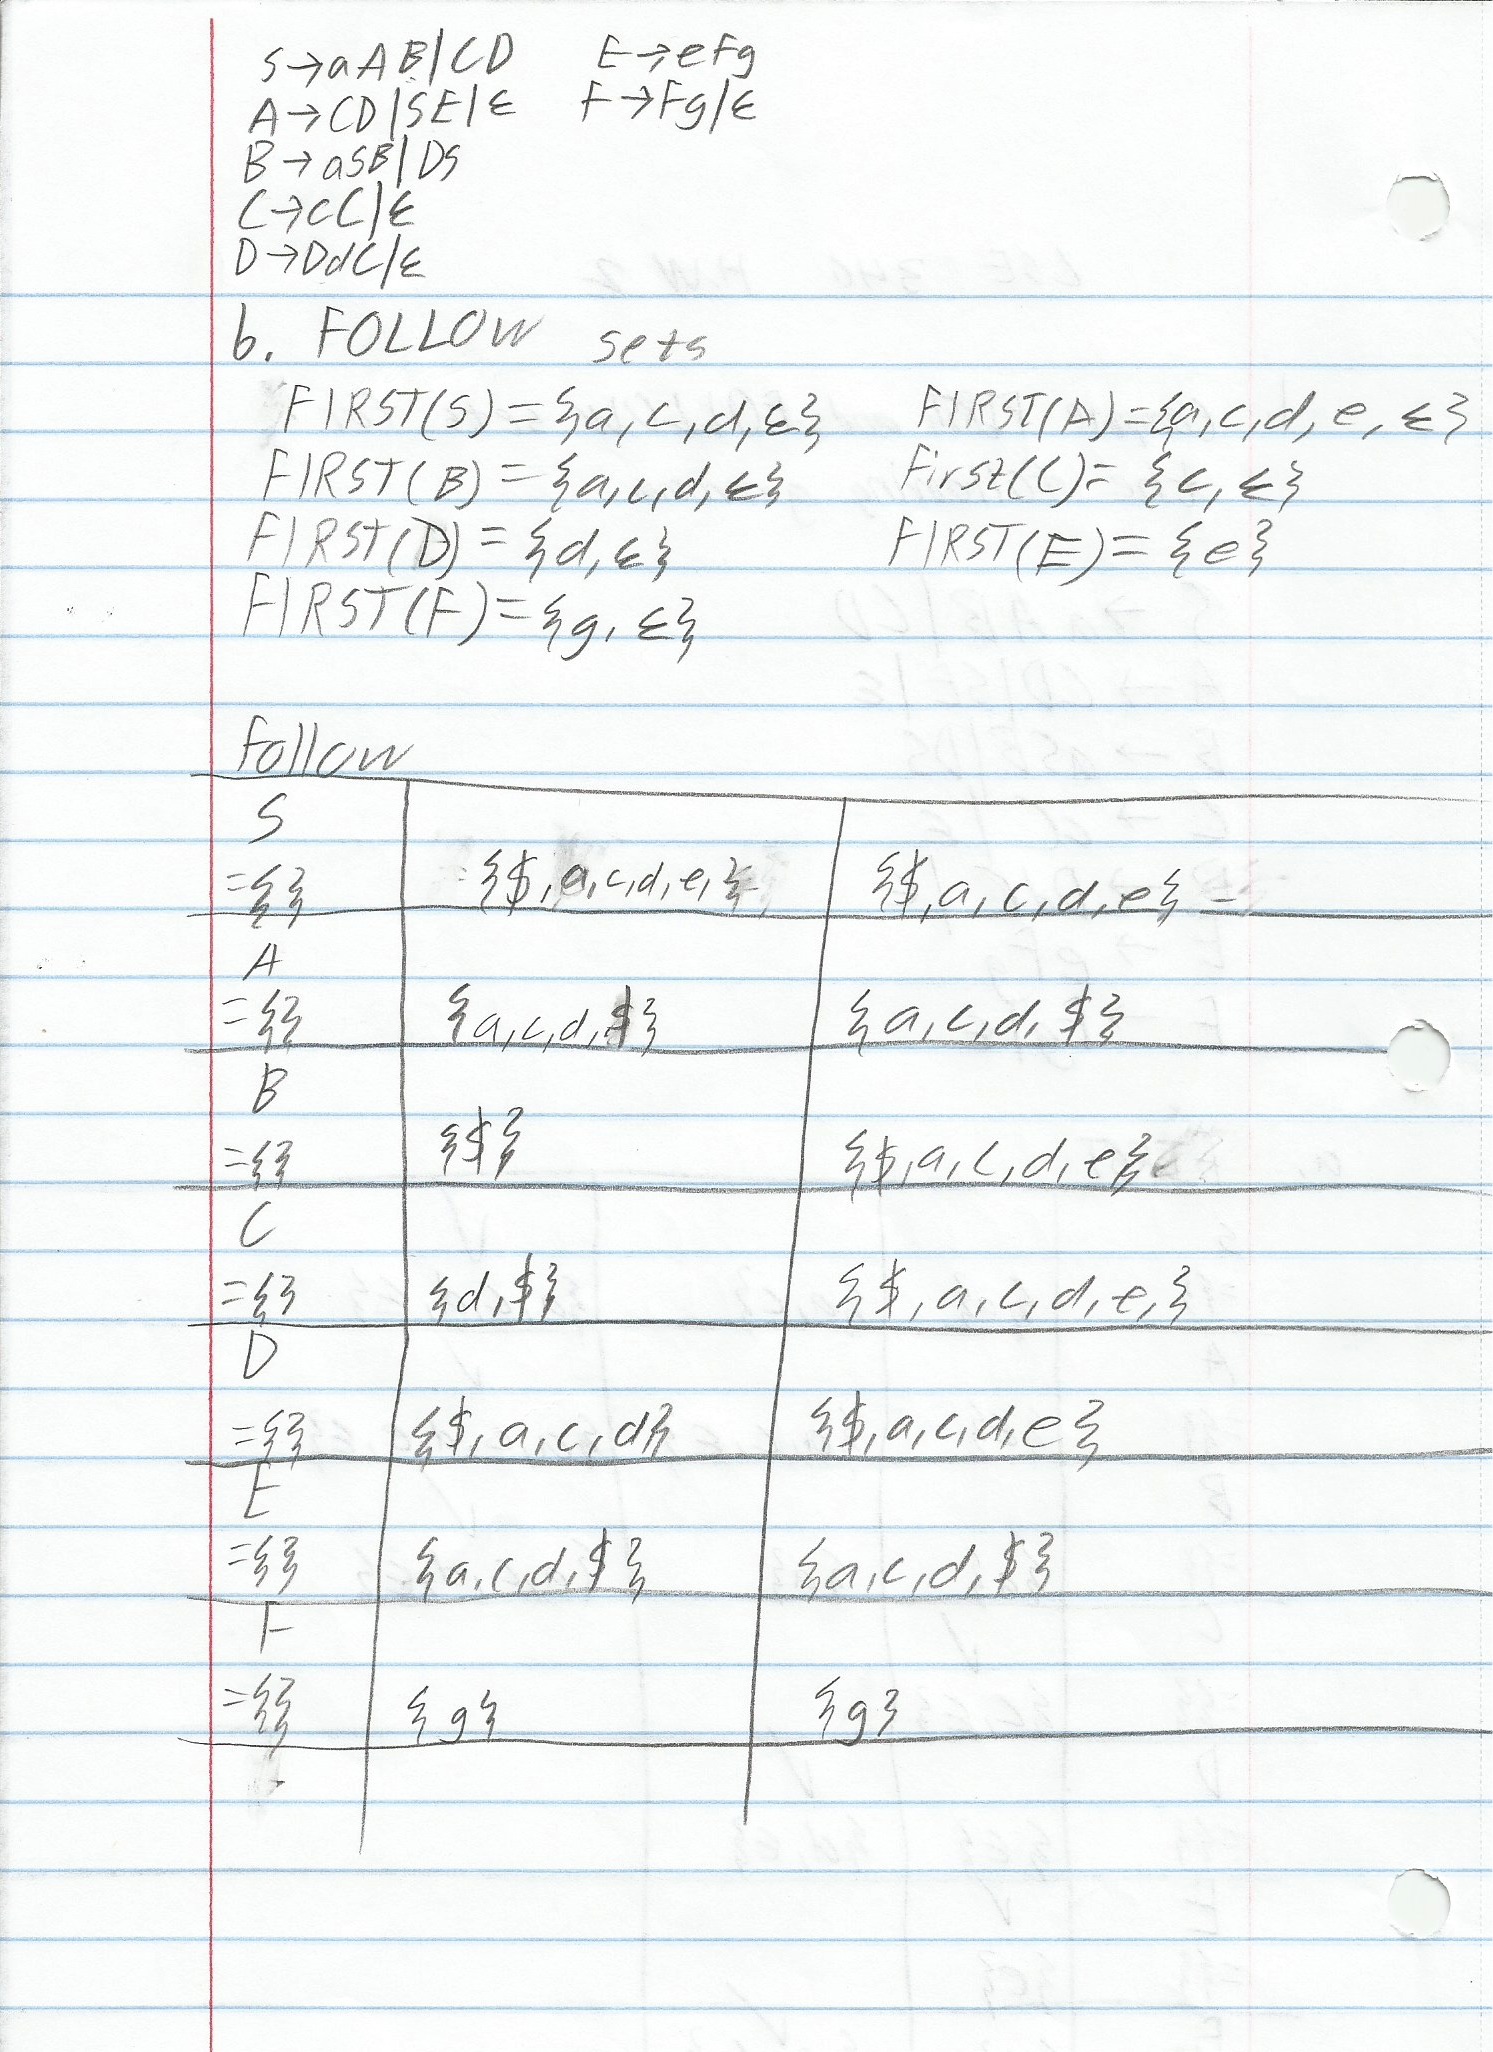 S→aAB|CD E→eFg
A→CD|SE|ε F→Fg|ε
B→aSB|DS
C→cC|ε
D→DdC|ε
b. FOLLOW sets
FIRST(S)={a,c,d,ε} FIRST(A)={a,c,d,e,ε}
FIRST(B)={a,c,d,ε} First(C)={c,ε}
FIRST(D)={d,ε} FIRST(E)={e}
FIRST(F)={g,ε}
Follow
S
={} {$,a,c,d,e,} {$,a,c,d,e}
A
={} {a,c,d,$} {a,c,d,$}
B
={} {$} {$,a,c,d,e}
C
={} {d,$} {$,a,c,d,e,}
D
={} {$,a,c,d} {$,a,c,d,e}
E
={} {a,c,d,$} {a,c,d,$}
F
={} {g} {g}